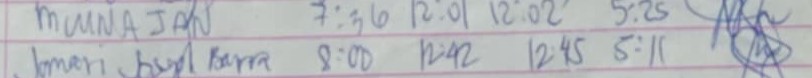 MUUNA JAN 7:36 12:01 12:02 5:25
Jomari Barra 8:00 12:42 12:45 5:11